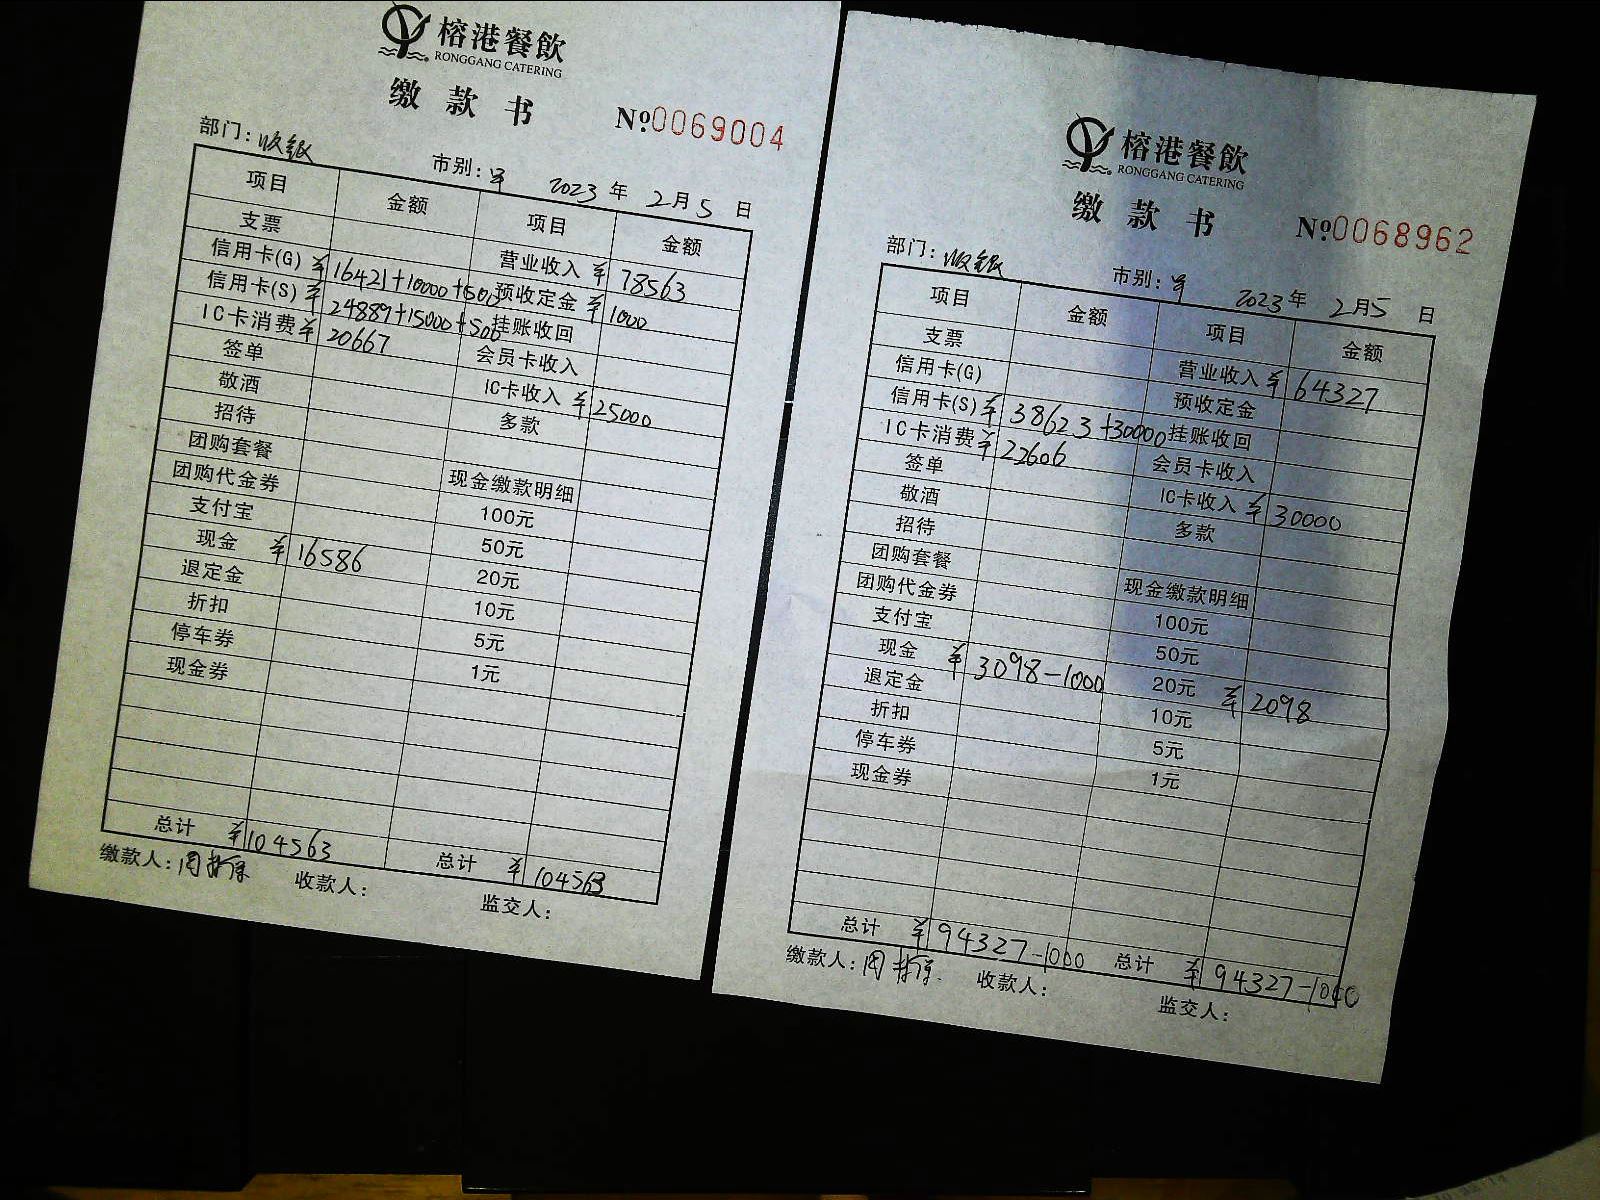 榕港餐飲
RONGGANG CATERING
缴款书
№0069004
部门:收银 市别:早 2023年2月5日
项目 金额 项目 金额
支票 营业收入 ¥78563
信用卡(G) ¥16421+10000+500 预收定金 ¥1000
信用卡(S) ¥24889+15000+500 挂账收回
IC卡消费 ¥20667 会员卡收入
签单 IC卡收入 ¥25000
敬酒 多款
招待
团购套餐 现金缴款明细
团购代金券 100元
支付宝 50元
现金 ¥16586 20元
退定金 10元
折扣 5元
停车券 1元
现金券
总计 ¥104563 总计 ¥104563
缴款人: 收款人: 监交人:
榕港餐飲
RONGGANG CATERING
缴款书
№0068962
部门:收银 市别:早 2023年2月5日
项目 金额 项目 金额
支票 营业收入 ¥64327
信用卡(G) 预收定金
信用卡(S) ¥38623+30000 挂账收回
IC卡消费 ¥22606 会员卡收入
签单 IC卡收入 ¥30000
敬酒 多款
招待
团购套餐 现金缴款明细
团购代金券 100元
支付宝 50元
现金 ¥3098-1000 20元 ¥2098
退定金 10元
折扣 5元
停车券 1元
现金券
总计 ¥94327-1000 总计 ¥94327-1000
缴款人: 收款人: 监交人: